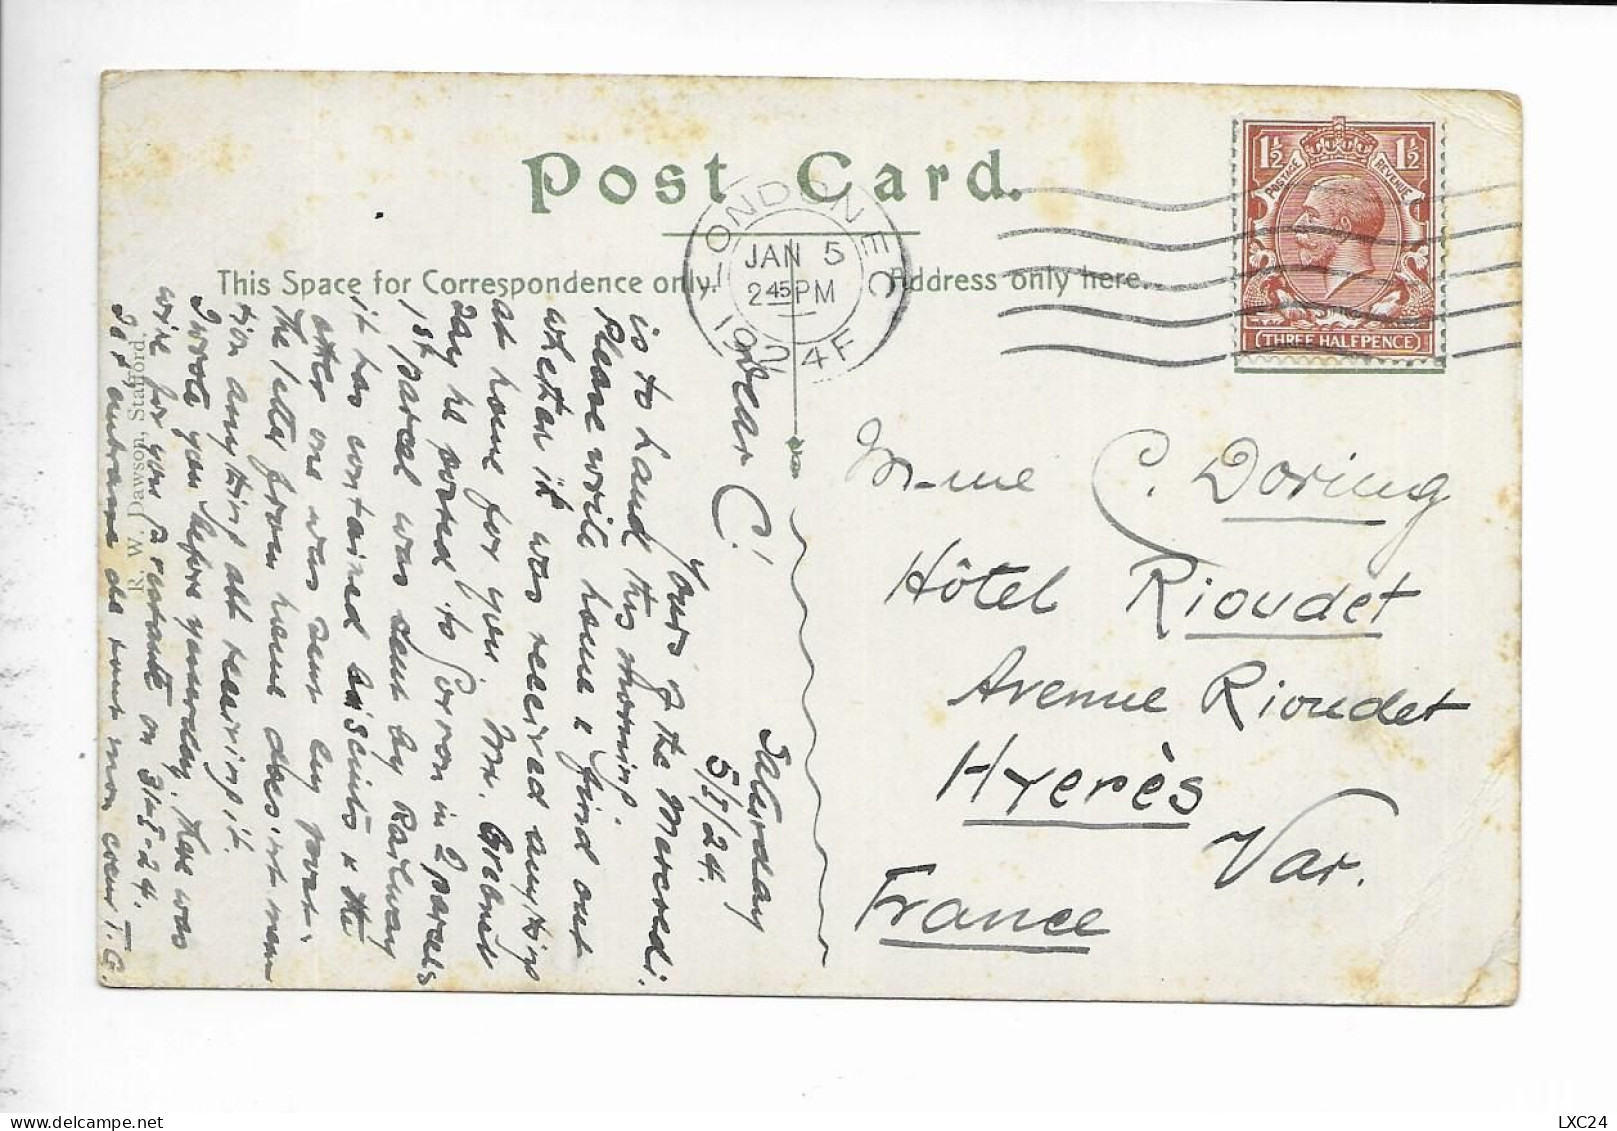 Post Card.
This Space for Correspondence only.
Address only here.
LONDON E C
JAN 5
2 45 PM
1924 F
1½ 1½
POSTAGE REVENUE
THREE HALFPENCE
Saturday
5/I/24.
Dear C.!
Yours of the Mercredi
is to hand this morning.
Please write home & find out
whether it was received anything
at home for you. Mr.
say he posted to in 2 parcels
1st parcel was sent by Railway
it has contained biscuits & the
other one was sent by post.
The letter from home does'nt men
tion anything abt receiving it.
I wrote you before yesterday. There was
wire for you on
de tout mon coeur T. G.
R. W. Dawson, Stafford.
M-me C. Doring
Hôtel Rioudet
Avenue Rioudet
Hyerès
Var.
France
LXC24